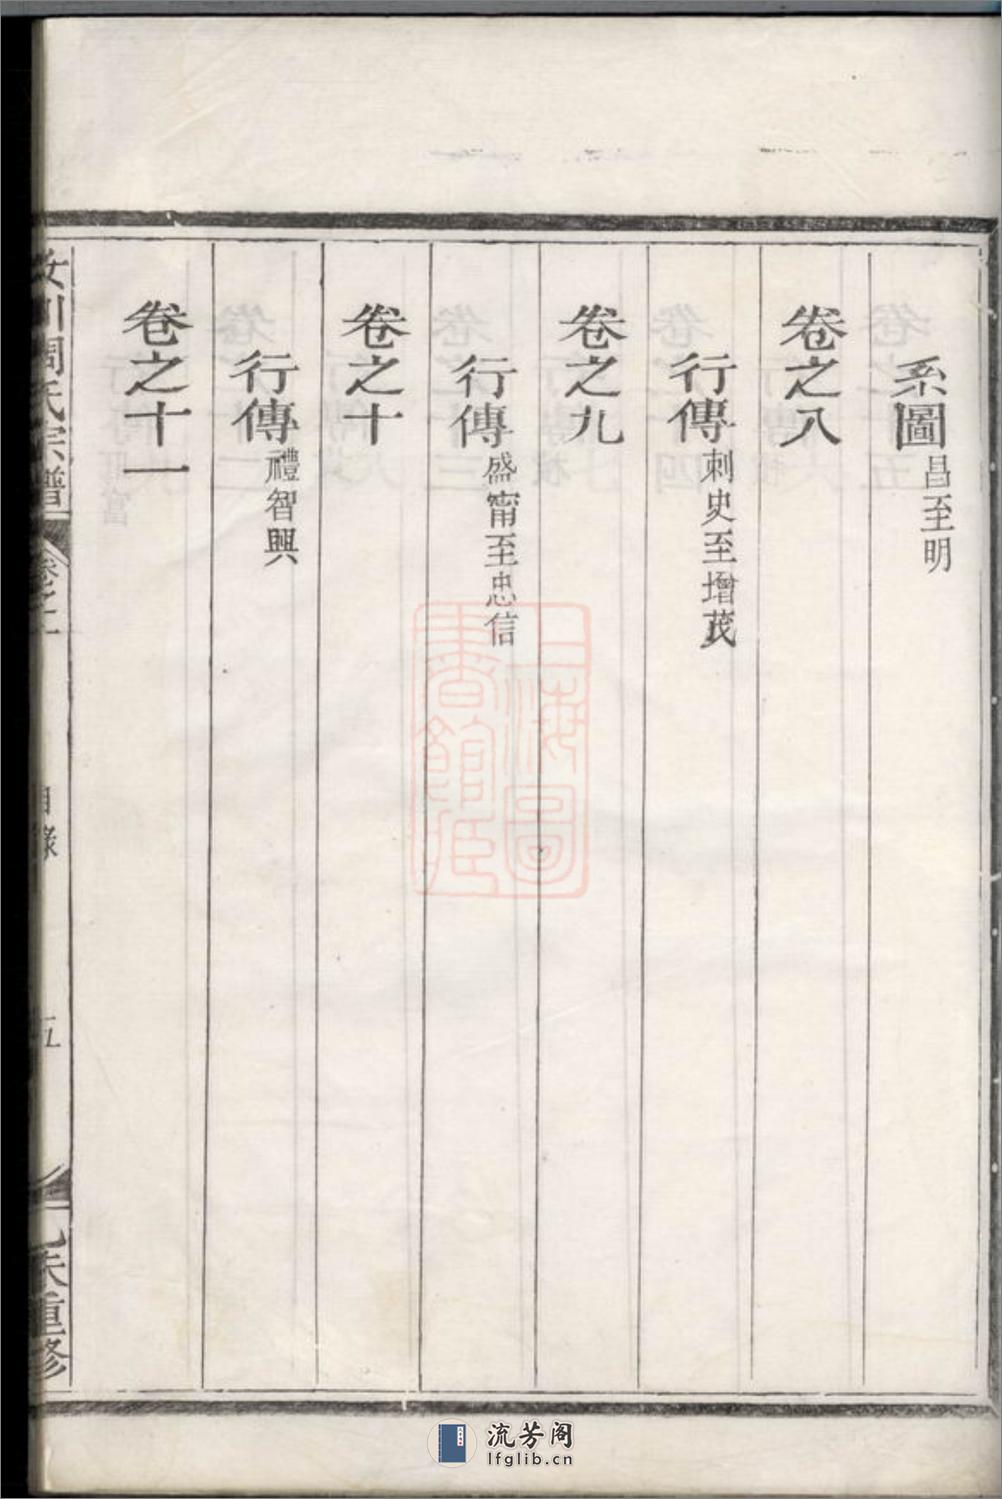 系圖昌至明
卷之八
行傳刺史至增茂
卷之九
行傳盛甯至忠信
卷之十
行傳禮智興
卷之十一
周氏宗譜
目錄
五
重修
上海圖書館藏
流芳阁
lfglib.cn